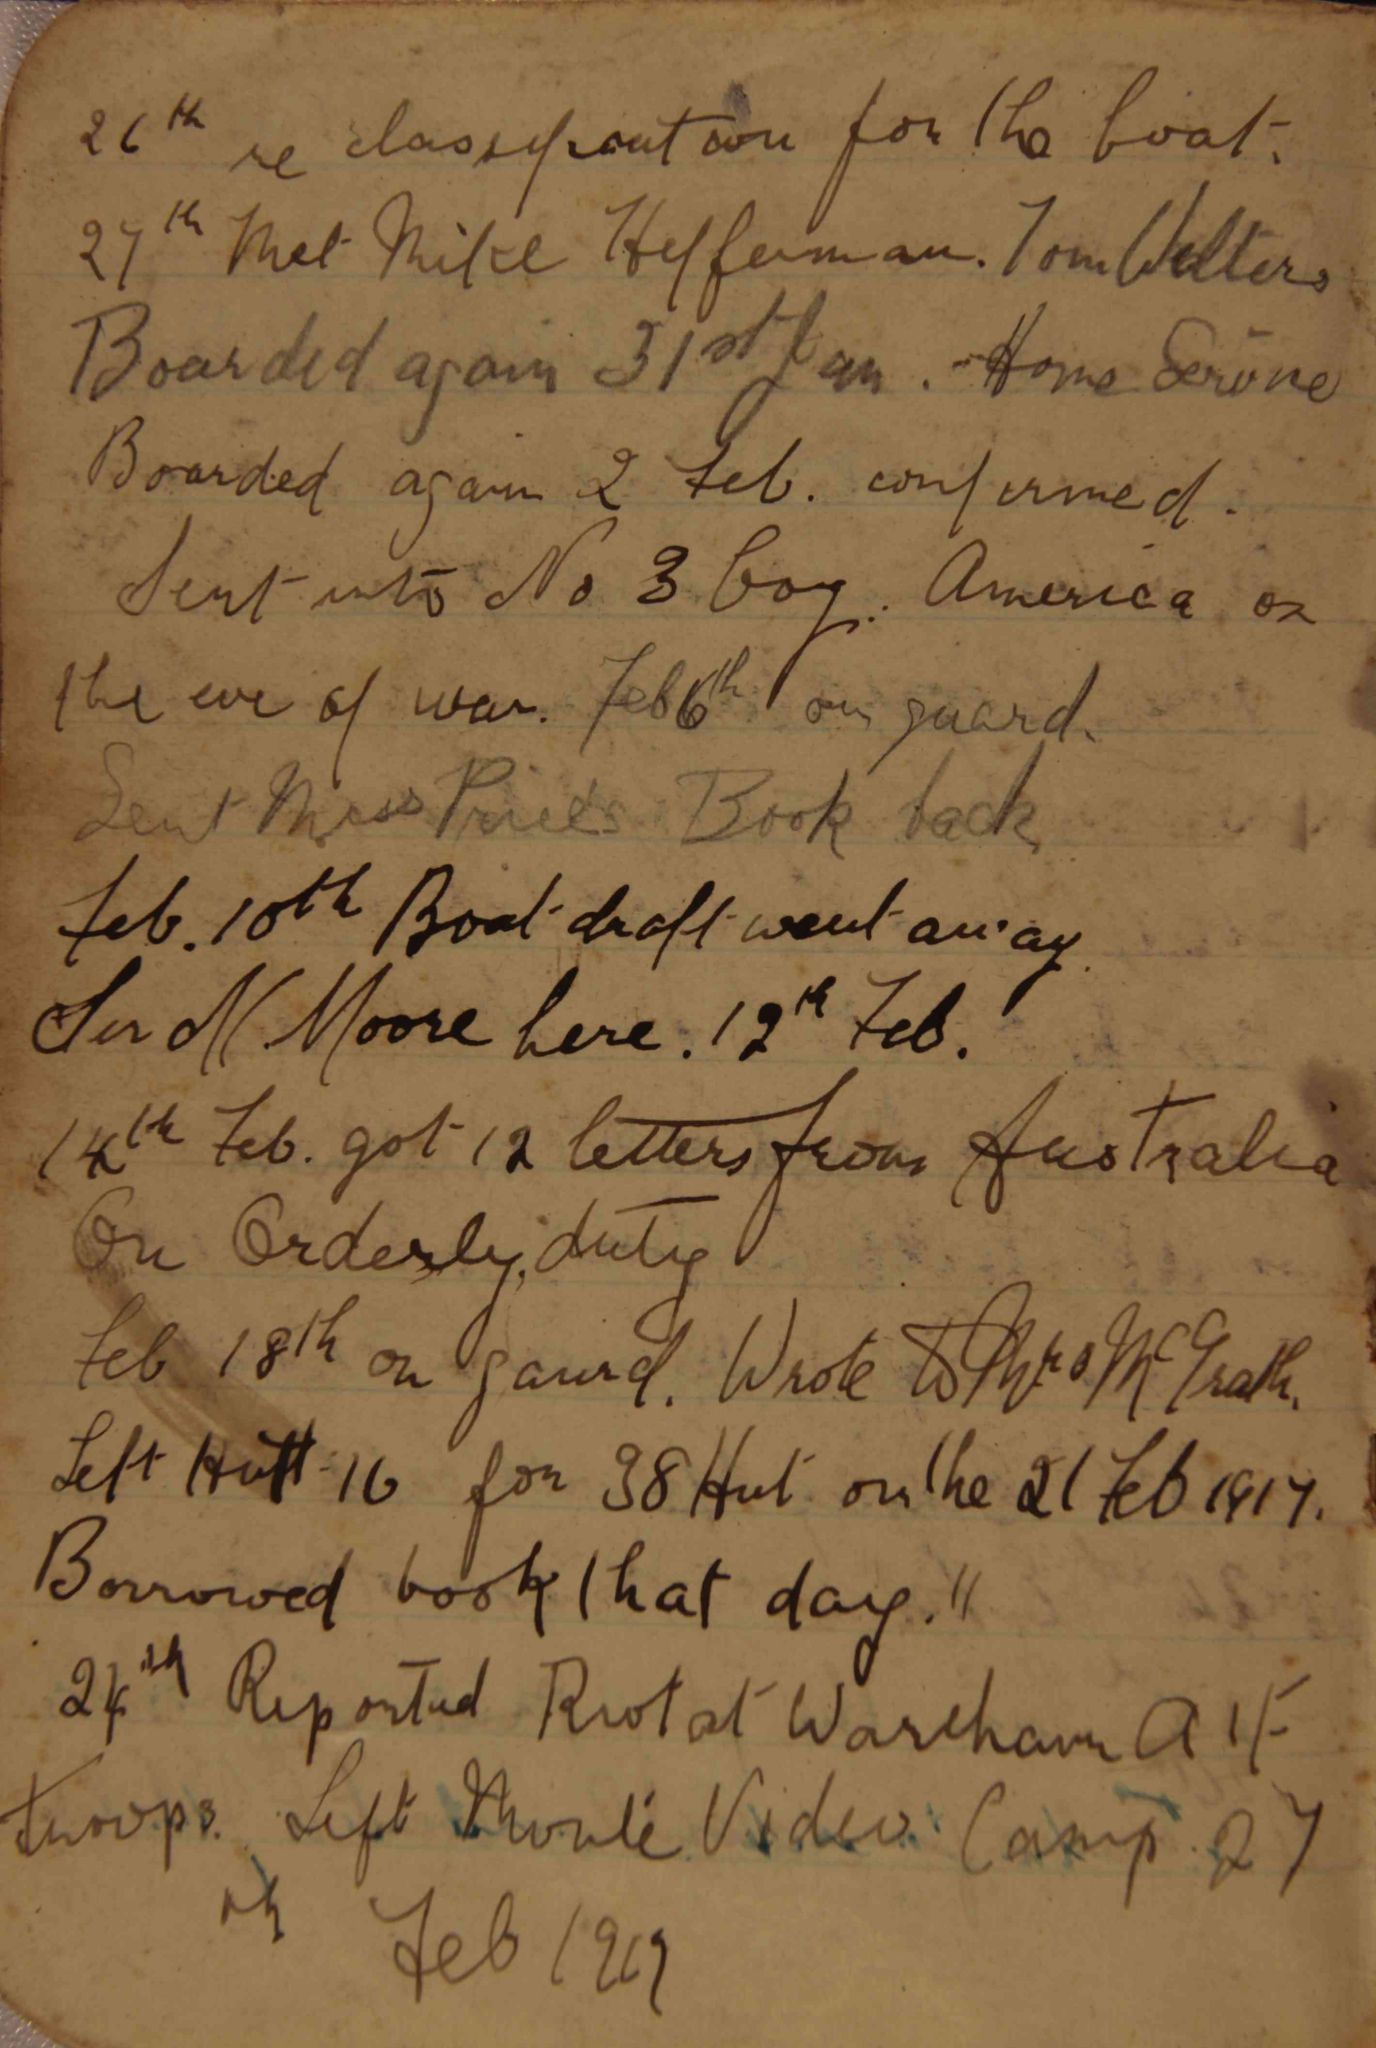 26th re classification for the boat.
27th Met Mike Heffernan. Tom Walters
Boarded again 31st Jan. - Home Service
Boarded again 2 Feb. confirmed.
Sent into No 3 Coy. America on
the eve of war. Feb 6th on guard.
Sent Miss Price's Book back
Feb. 10th Boat draft went away
Sir N. Moore here. 12th Feb.
14th Feb. got 12 letters from Australia
On Orderly, duty
Feb 18th on gaurd. Wrote to Mrs McGrath.
Left Hutt 16 for 38 Hut on the 21 Feb 1917.
Borrowed book that day."
24th Reported Riot at Wareham A I F
troops. Left Monte Video Camp. 27
th Feb 1917